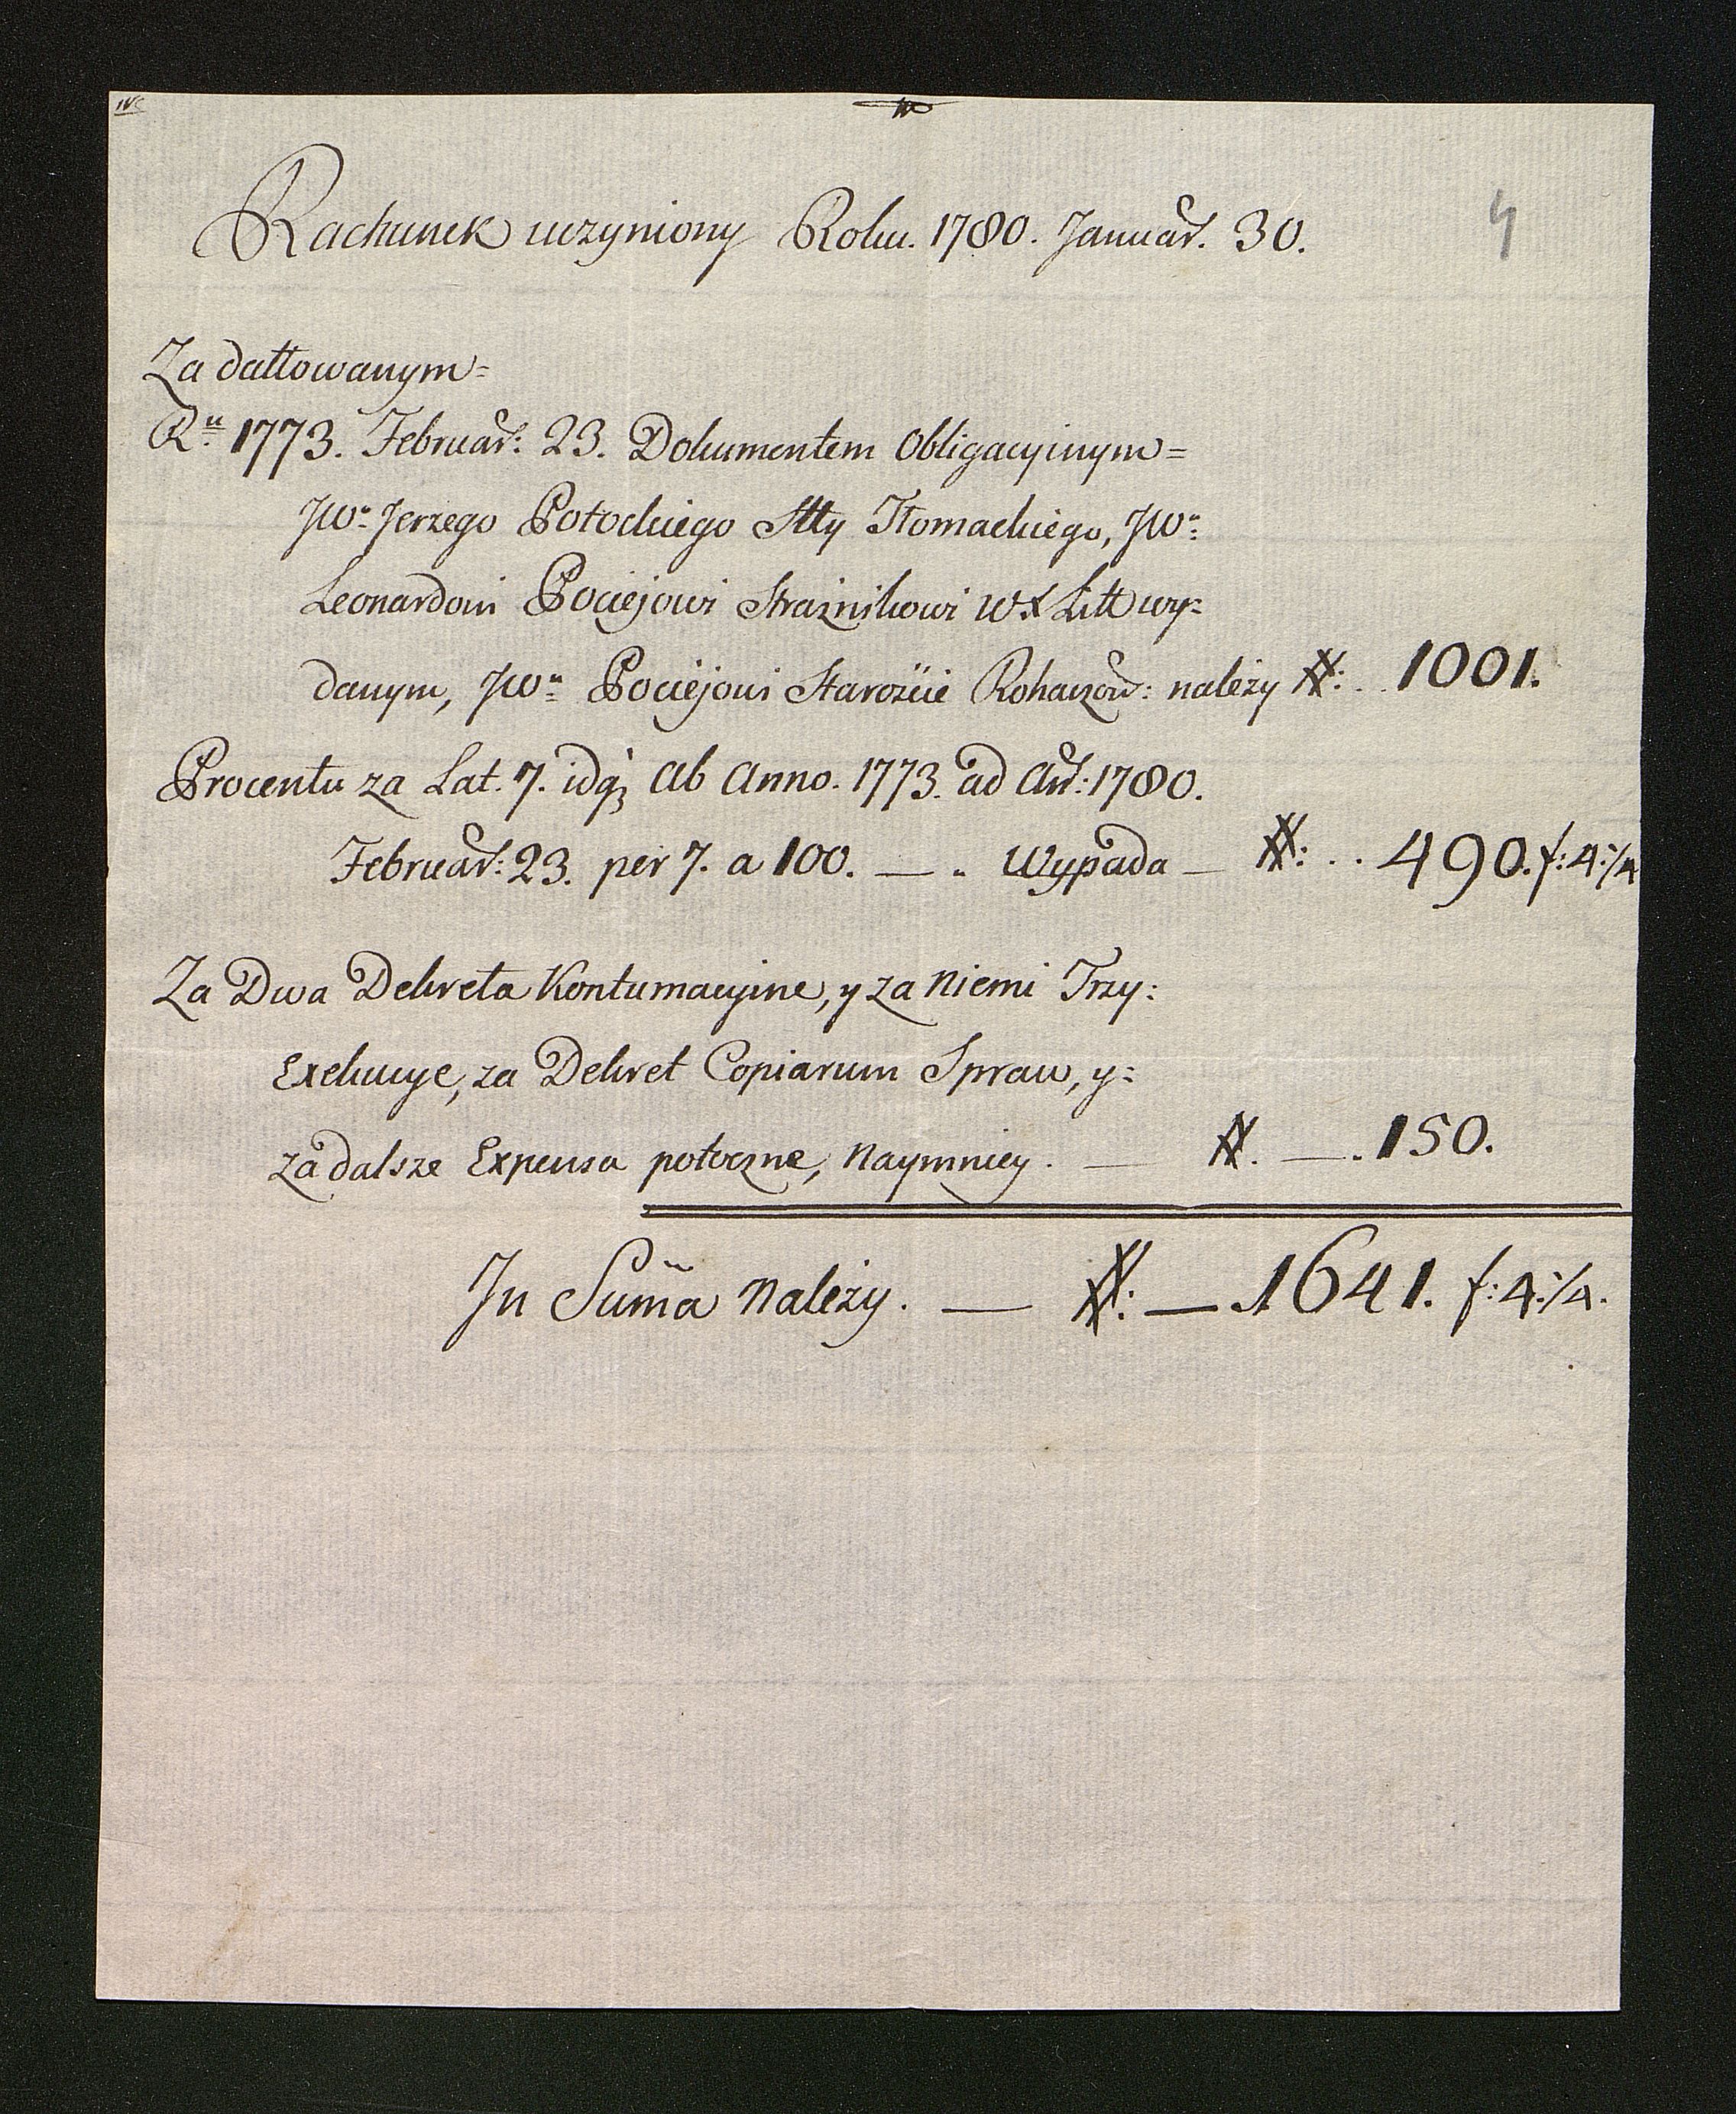 Rachunek uczyniony Roku. 1780. Januar. 30.
4
Za dattowanym=
Ru 1773. Februar: 23. Dokumentem Obligacyinym=
JWo Jerzego Potockiego Stty Tłomackiego, JWu
Leonardowi Pociejowi Strażnikowi WX Litt wy=
danym, JWu Pociejowi Starościе Rohaczow: należy #: .. 1001.
Procentu za Lat. 7. idq; Ab Anno. 1773. ad An: 1780.
Februar: 23. per 7. a 100. — . Wypada — #: .. 490. f: 4:/4
Za Dwa Dekreta Kontumacyine, y za niemi Trzy:
Exekucye, za Dekret Copiarum Spraw, y=
za dalsze Expensa potoczne, naymniey. — #. — . 150.
In Suma należy. — #: — 1641. f: 4:/4.